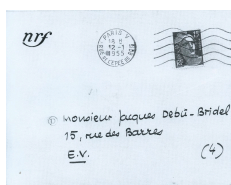 nrf
PARIS V
18 H
12 - 1
1955
Monsieur Jacques Debû-Bridel
15, rue des Barres
E.V. (4)